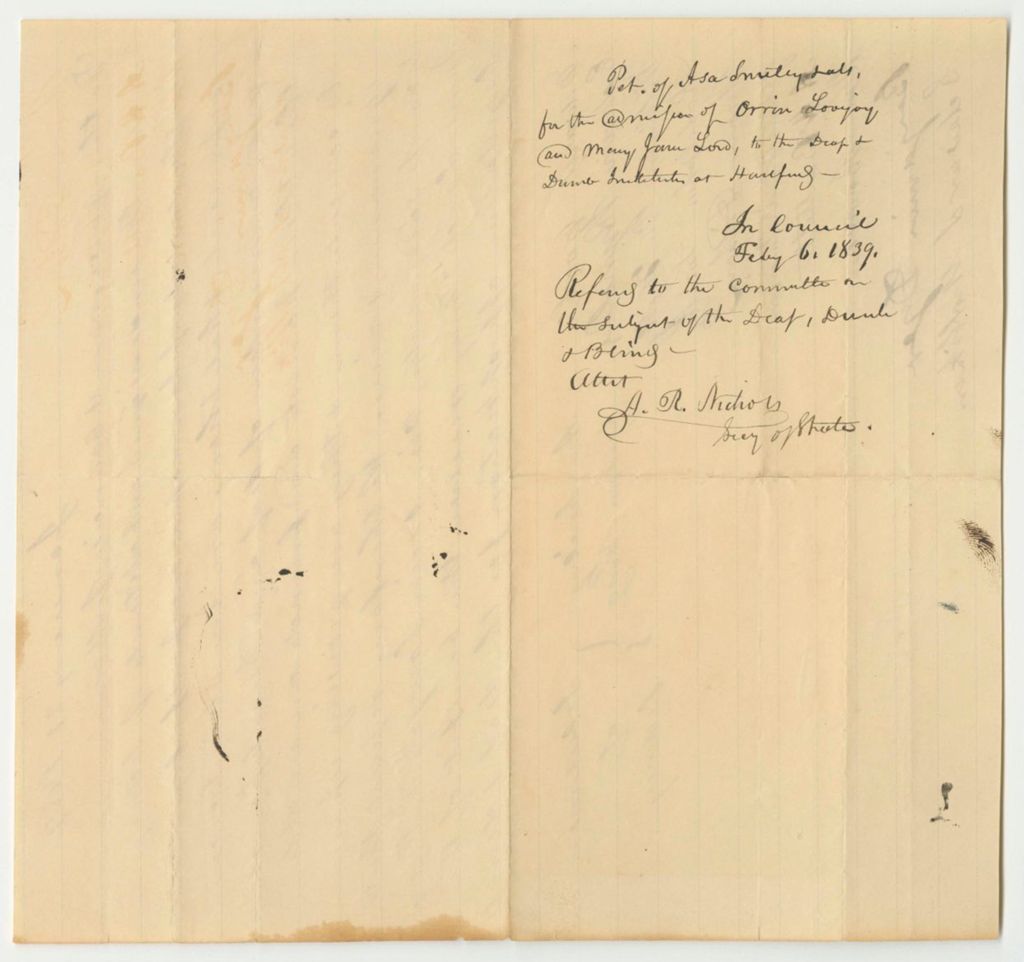 Pet. of Asa Smiley & als,
for the admission of Orrin Lovejoy
and Mary Jane Lord, to the Deaf &
Dumb Institute at Hartford —
In Council
Feby 6. 1839.
Referred to the Committee on
the subject of the Deaf, Dumb
& Blind —
Attest
A. R. Nichols
Secy of State.